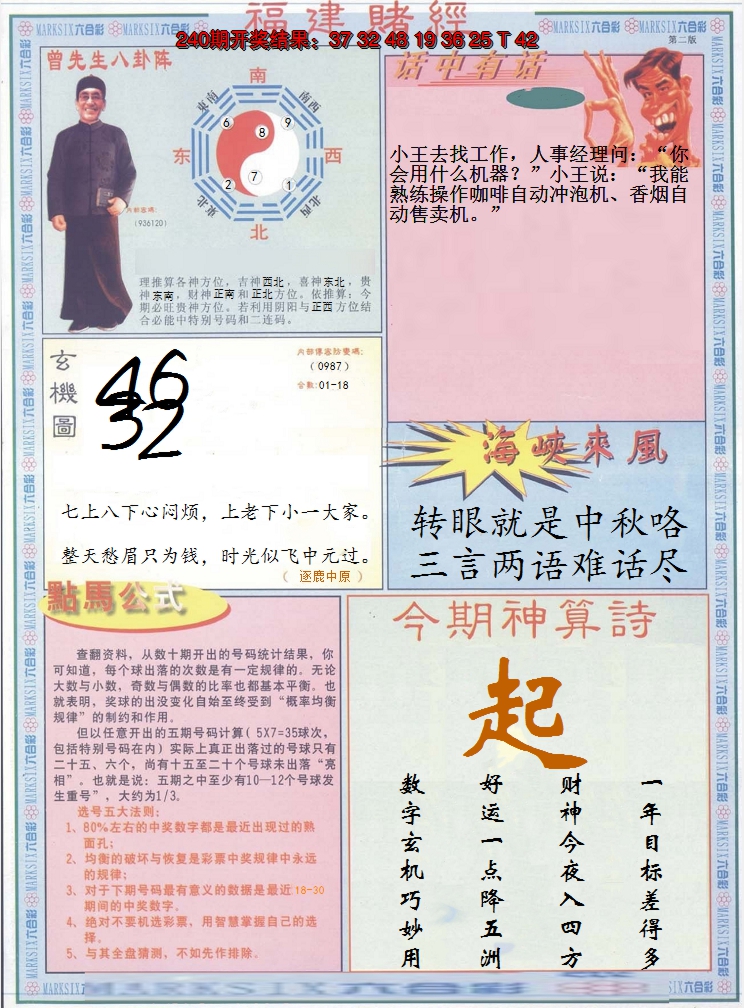 福建賭經
240期开奖结果：37 32 48 19 36 25 T 42
第二版
MARKSIX六合彩
曾先生八卦阵
南
東南
南西
6
8
9
东
西
2
7
1
東北
北西
北
內部密碼：
(936120)
理推算各神方位，吉神西北，喜神东北，贵
神东南，财神正南和正北方位。依推算：今
期必旺贵神方位。若利用阴阳与正西方位结
合必能中特别号码和二连码。
话中有话
小王去找工作，人事经理问：“你
会用什么机器？”小王说：“我能
熟练操作咖啡自动冲泡机、香烟自
动售卖机。”
玄機圖
46
32
（0987）
合數:01-18
七上八下心闷烦，上老下小一大家。
整天愁眉只为钱，时光似飞中元过。
（ 逐鹿中原 ）
海峽來風
转眼就是中秋咯
三言两语难话尽
點馬公式
查翻资料，从数十期开出的号码统计结果，你
可知道，每个球出落的次数是有一定规律的。无论
大数与小数，奇数与偶数的比率也都基本平衡。也
就表明，奖球的出没变化自始至终受到“概率均衡
规律”的制约和作用。
但以任意开出的五期号码计算( 5X7=35球次，
包括特别号码在内）实际上真正出落过的号球只有
二十五、六个，尚有十五至二十个号球未出落“亮
相”。也就是说：五期之中至少有10—12个号球发
生重号”，大约为1/3。
选号五大法则：
1、80%左右的中奖数字都是最近出现过的熟
面孔；
2、均衡的破坏与恢复是彩票中奖规律中永远
的规律；
3、对于下期号码最有意义的数据是最近18-30
期间的中奖数字。
4、绝对不要机选彩票，用智慧掌握自己的选
择。
5、与其全盘猜测，不如先作排除。
今期神算詩
起
一年目标差得多
财神今夜入四方
好运一点降五洲
数字玄机巧妙用